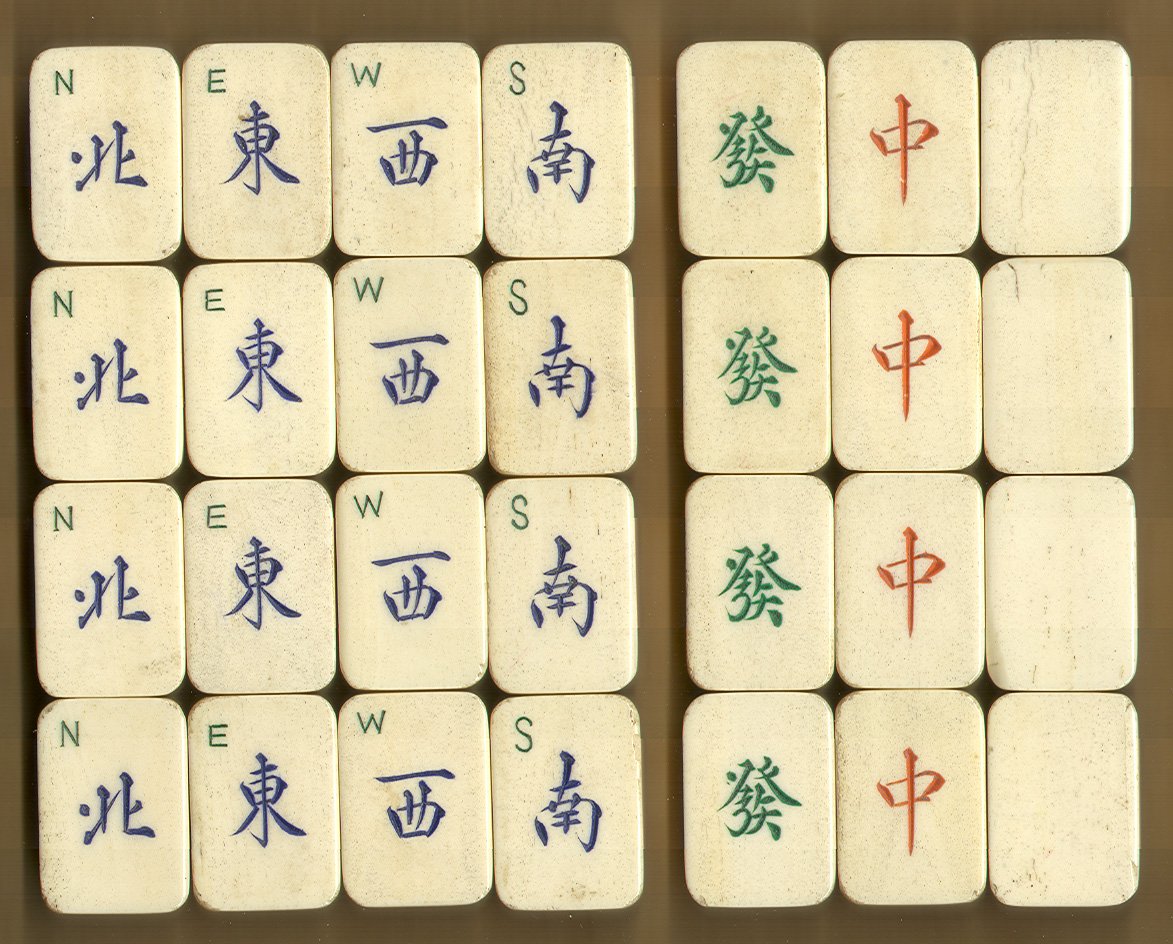 N E W S
北 東 西 南 發 中
N E W S
北 東 西 南 發 中
N E W S
北 東 西 南 發 中
N E W S
北 東 西 南 發 中